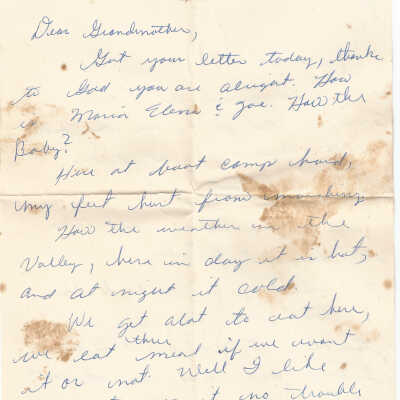 Dear Grandmother,
Got your letter today, thanks
to God you are alright. How
is Maria Elena & Joe. How the
Baby?
Here at boot camp hard,
my feet hurt from marching
How the weather in the
Valley, here in day it is hot,
and at night it cold
We get alot to eat here,
three
we eat meal if we want
it or not. Well I like
it no trouble